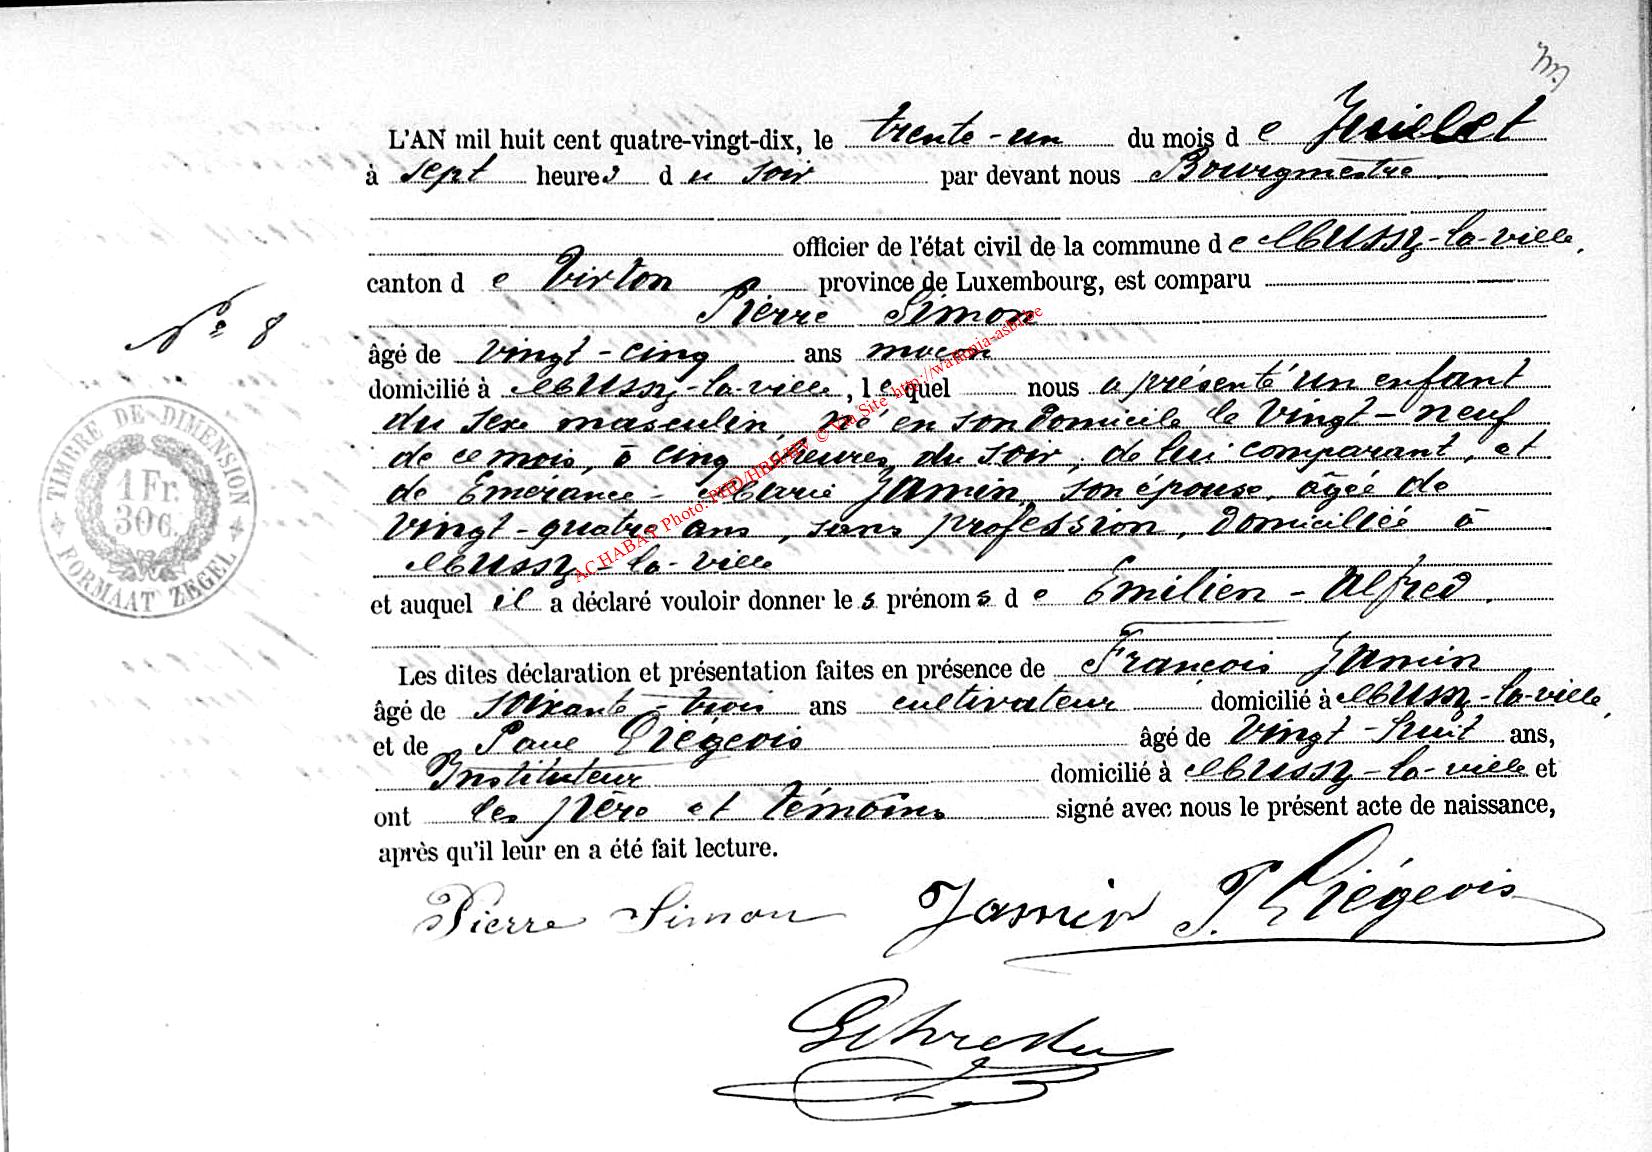 L'AN mil huit cent quatre-vingt-dix, le trente-un du mois de Juillet
à sept heures du soir par devant nous Bourgmestre
officier de l'état civil de la commune de Mussy-la-ville,
canton de Virton province de Luxembourg, est comparu
Pierre Simon
N° 8
âgé de vingt-cinq ans maçon
domicilié à Mussy-la-ville, lequel nous a présenté un enfant
du sexe masculin, né en son domicile le vingt-neuf
de ce mois, à cinq heures du soir, de lui comparant, et
de Emérance-Marie Jamin, son épouse, âgée de
vingt-quatre ans, sans profession, domiciliée à
Mussy-la-ville
et auquel il a déclaré vouloir donner les prénoms de Emilien-Alfred.
Les dites déclaration et présentation faites en présence de François Jamin
âgé de soixante-trois ans cultivateur domicilié à Mussy-la-ville,
et de Paul Liégeois âgé de vingt-huit ans,
Instituteur domicilié à Mussy-la-ville et
ont les père et témoins signé avec nous le présent acte de naissance,
après qu'il leur en a été fait lecture.
Pierre Simon Jamin P. Liégeois
TIMBRE DE DIMENSION
1 Fr.
30 c.
FORMAAT ZEGEL
AC HABAY Photo: PHD/HBH/HV © Via Site http://wallonia-asbl.be